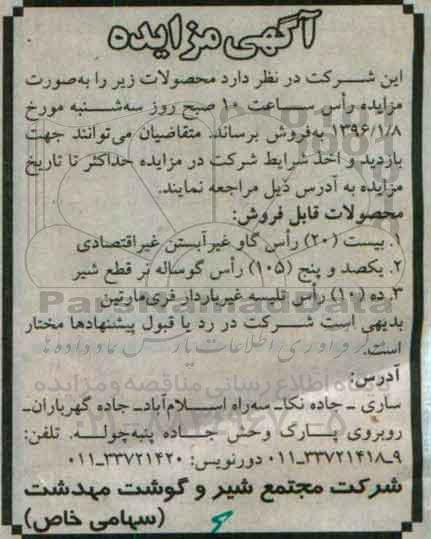 آگهی مزایده
این شرکت در نظر دارد محصولات زیر را به‌صورت
مزایده رأس ساعت ۱۰ صبح روز سه‌شنبه مورخ
۱۳۹۶/۱/۸ به‌فروش برساند. متقاضیان می‌توانند جهت
بازدید و اخذ شرایط شرکت در مزایده حداکثر تا تاریخ
مزایده به آدرس ذیل مراجعه نمایند.
محصولات قابل فروش:
۱. بیست (۲۰) رأس گاو غیرآبستن غیراقتصادی
۲. یکصد و پنج (۱۰۵) رأس گوساله نر قطع شیر
۳. ده (۱۰) رأس تلیسه غیرباردار فری‌مارتین
بدیهی است شرکت در رد یا قبول پیشنهادها مختار
است.
آدرس:
ساری ـ جاده نکاـ سه‌راه اسلام‌آبادـ جاده گهربارانـ
روبروی پارک وحش جاده پنبه‌چوله. تلفن:
۹ـ۳۳۷۲۱۴۱۸ـ۰۱۱ دورنویس: ۳۳۷۲۱۴۲۰ـ۰۱۱
شرکت مجتمع شیر و گوشت مهدشت
(سهامی خاص)
ParsNamadData